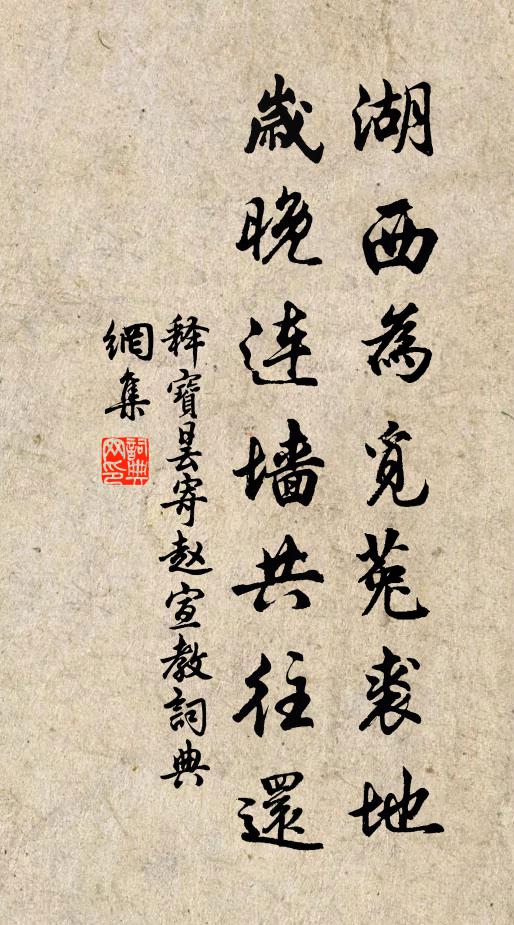 湖西為覓菟裘地
歲晚连墙共往還
释寶曇寄赵宣教詞典
網集
詞典网印